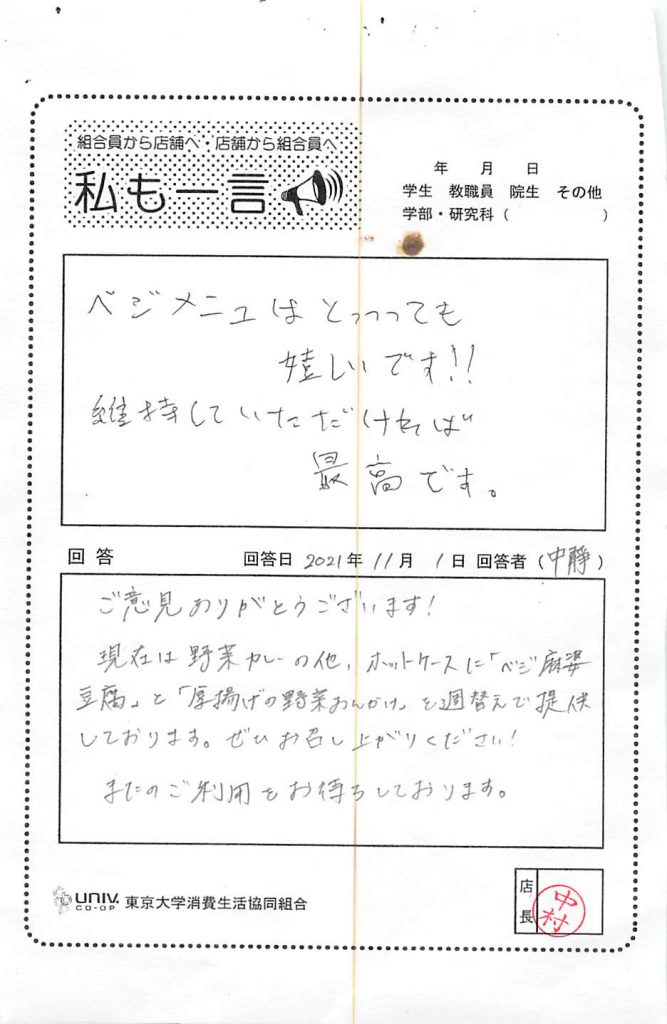 組合員から店舗へ・店舗から組合員へ
私も一言
年 月 日
学生 教職員 院生 その他
学部・研究科( )
ベジメニューはとっっっても
嬉しいです!!
維持していただければ
最高です。
回答 回答日 2021年 11月 1日 回答者(中靜)
ご意見ありがとうございます!
現在は野菜カレーの他、ホットケースに「ベジ麻婆
豆腐」と「厚揚げの野菜あんかけ」を週替えで提供
しております。ぜひお召し上がりください!
またのご利用をお待ちしております。
UNIV. CO-OP 東京大学消費生活協同組合
店長 中村